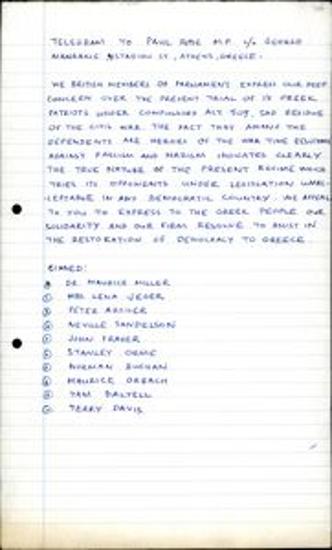 TELEGRAM TO PAUL ROSE M.P. c/o GEORGE
STADIOU ST, ATHENS, GREECE.
WE BRITISH MEMBERS OF PARLIAMENT EXPRESS OUR DEEP
CONCERN OVER THE PRESENT TRIAL OF 15 GREEK
PATRIOTS UNDER COMPULSORY ACT 509, SAD RESIDUE
OF THE CIVIL WAR. THE FACT THAT AMONG THE
DEFENDENTS ARE HEROES OF THE WAR TIME
AGAINST FASCISM AND NAZISM INDICATES CLEARLY
THE TRUE NATURE OF THE PRESENT REGIME WHICH
TRIES ITS OPPONENTS UNDER LEGISLATION UNAC
CEPTABLE IN ANY DEMOCRATIC COUNTRY. WE APPEAL
TO YOU TO EXPRESS TO THE GREEK PEOPLE OUR
SOLIDARITY AND OUR FIRM RESOLVE TO ASSIST IN
THE RESTORATION OF DEMOCRACY TO GREECE.
SIGNED:
DR. MAURICE MILLER
MRS LENA JEGER
PETER ARCHER
NEVILLE SANDELSON
JOHN FRASER
STANLEY ORME
NORMAN BUCHAN
MAURICE ORBACH
TAM DALYELL
TERRY DAVIS